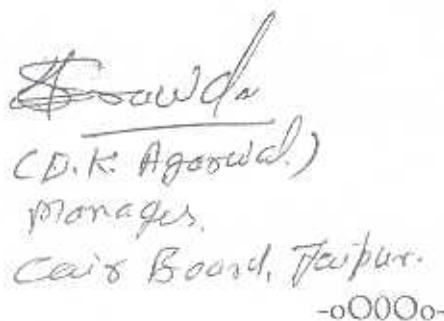 (D.K. Agarwal.)
Manager,
Coir Board, Jaipur.
-oOOOo-